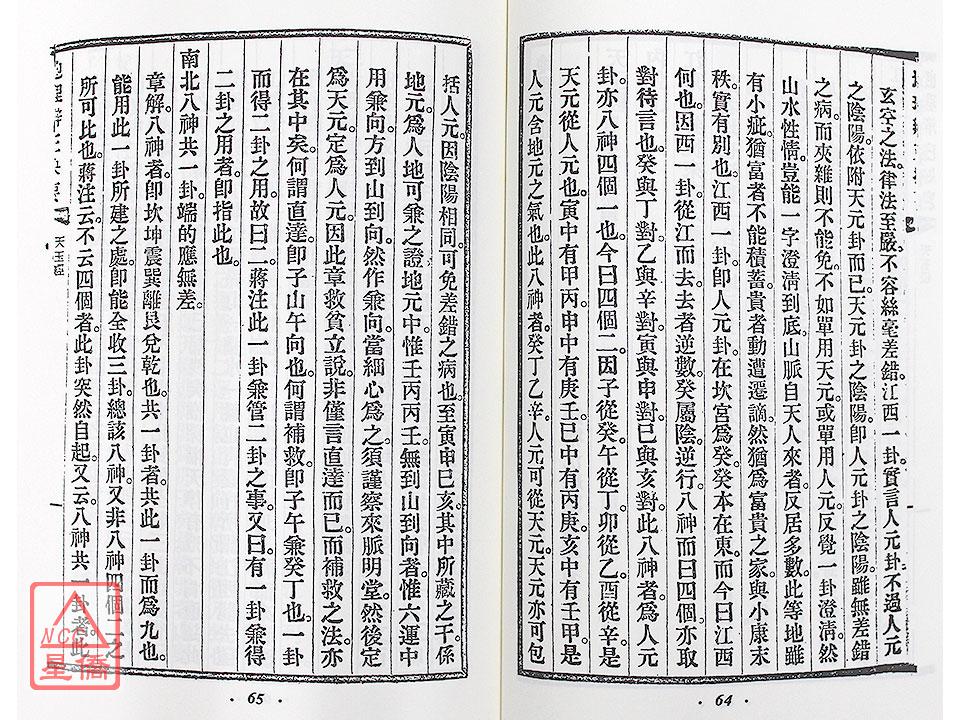 玄空之法律法至嚴。不容絲毫差錯。江西一卦。實言人元卦不過人元
之陰陽。依附天元卦而已。天元卦之陰陽。即人元卦之陰陽。雖無差錯
之病。而夾雜則不能免。不如單用天元。或單用人元。反覺一卦澄清。然
山水性情。豈能一字澄清到底。山脈自天人來者。反居多數。此等地雖
有小疵。猶富者不能積蓄。貴者動遭遷謫。然猶為富貴之家。與小康末
秩。實有別也。江西一卦。即人元卦。在坎宮為癸。癸本在東。而今曰江西
何也。因西一卦。從江而去。去者逆數。癸屬陰逆行。八神而曰四個。亦取
對待言也。癸與丁對。乙與辛對。寅與申對。巳與亥對。此八神者。為人元
卦。亦八神四個一也。今曰四個二。因子從癸。午從丁。卯從乙。酉從辛。是
天元從人元也。寅中有甲丙。申中有庚壬。巳中有丙庚。亥中有壬甲。是
人元含地元之氣也。此八神者。癸丁乙辛。人元可從天元。天元亦可包
64
括人元。因陰陽相同。可免差錯之病也。至寅申巳亥。其中所藏之干。係
地元。為人地可兼之證。地元中。惟壬丙丙壬。無到山到向者。惟六運中
用兼向。方到山到向。然作兼向。當細心為之。須謹察來脈明堂。然後定
為天元。定為人元。因此章救貧立說。非僅言直達而已。而補救之法。亦
在其中矣。何謂直達。即子山午向也。何謂補救。即子午兼癸丁也。一卦
而得二卦之用。故曰二。蔣注此一卦兼管二卦之事。又曰。有一卦兼得
二卦之用者。即指此也。
南北八神共一卦。端的應無差。
章解。八神者。即坎坤震巽離艮兌乾也。共一卦者。共此一卦而為九也。
能用此一卦所建之處。即能全收三卦。總該八神。又非八神四個二之
所可比也。蔣注云。不云四個者。此卦突然自起。又云。八神共一卦者。此
天玉經
65
NCC
星僑